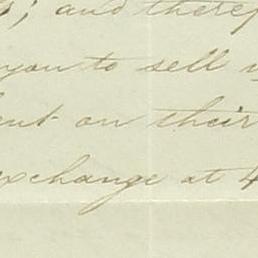 ; and theref
you to sell
on their
exchange at 4